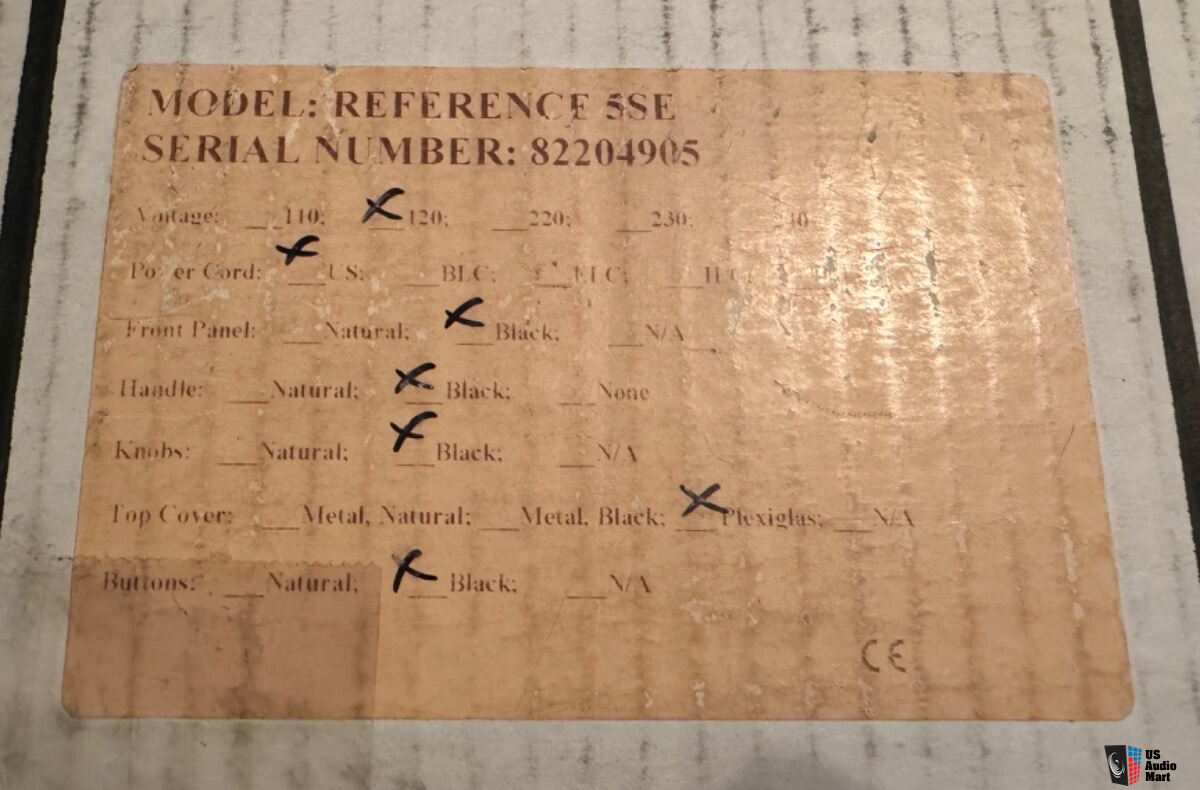 MODEL: REFERENCE 5SE
SERIAL NUMBER: 82204905
Voltage: __110; X 120; __220; __230; 
Power Cord: X US; __BLC; __ELC;
Front Panel: __Natural; X Black; __N/A
Handle: __Natural; X Black; __None
Knobs: __Natural; X Black; __N/A
Top Cover: __Metal, Natural; __Metal, Black; X Plexiglas; __N/A
Buttons: __Natural; X Black; __N/A
CE
US
Audio
Mart